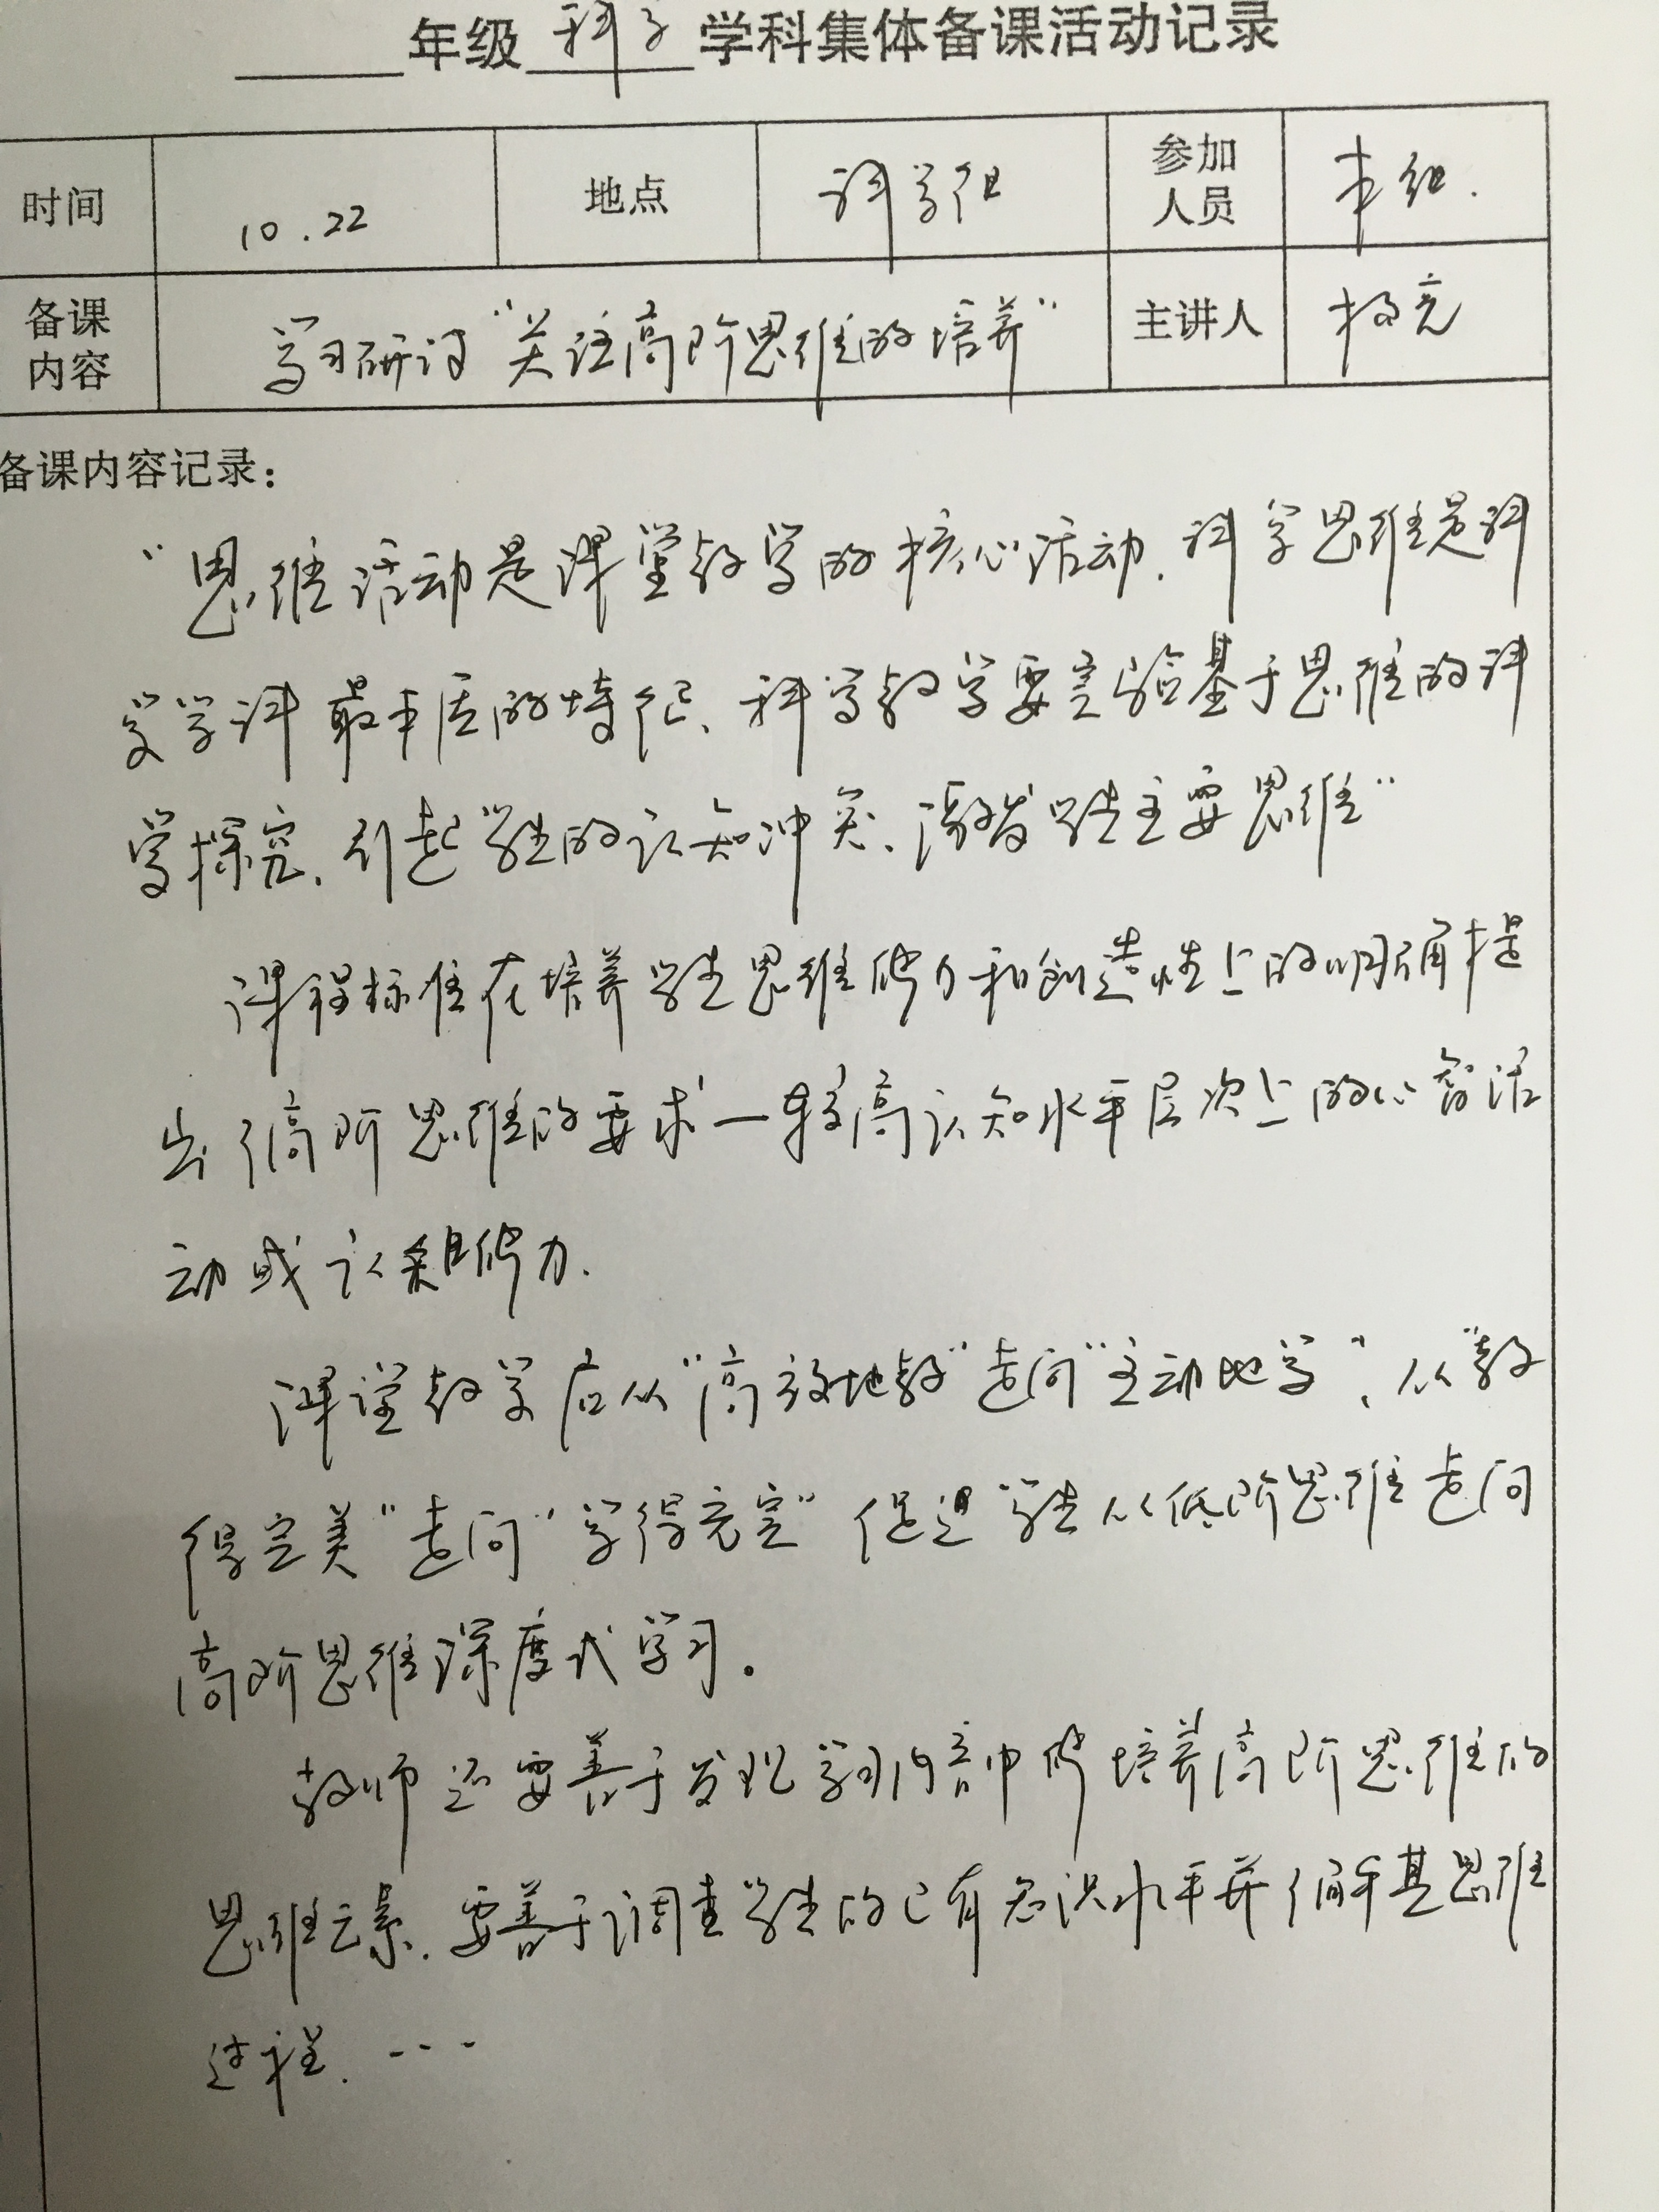 年级 科学 学科集体备课活动记录
时间 10.22 地点 科学组 参加人员 本组.
备课内容 学习研讨“关注高阶思维的培养” 主讲人 杨亮
备课内容记录:
“思维活动是课堂教学的核心活动.科学思维是科
学学科最本质的特征、科学教学要实验基于思维的科
学探究.引起学生的认知冲突、激发学生主要思维”
课程标准在培养学生思维能力和创造性上的明确提
出了高阶思维的要求—较高认知水平层次上的心智活
动或认知能力.
课堂教学应从“高效地教”走向“主动地学”、从“教
得完美”走向“学得充实”促进学生从低阶思维走向
高阶思维深度式学习。
教师还要善于发现学习内容中能培养高阶思维的
思维元素.要善于调查学生的已有知识水平并了解其思维
过程.…